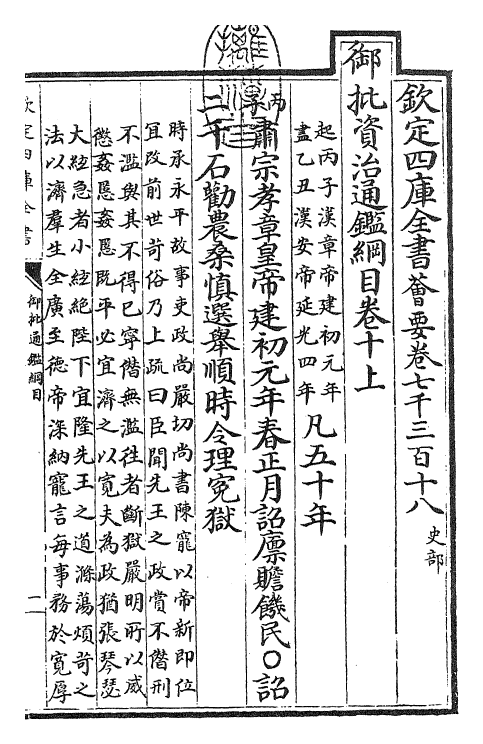 欽定四庫全書薈要卷七千三百十八 史部
御批資治通鑑綱目卷十上
起丙子漢章帝建初元年
盡乙丑漢安帝延光四年
凡五十年
丙子
肅宗孝章皇帝建初元年春正月詔廩贍饑民○詔
二千石勸農桑慎選舉順時令理寃獄
時承永平故事吏政尚嚴切尚書陳寵以帝新即位
宜改前世苛俗乃上疏曰臣聞先王之政賞不僭刑
不濫與其不得已寧僭無濫往者斷獄嚴明所以威
懲姦慝姦慝既平必宜濟之以寛夫為政猶張琴瑟
大絃急者小絃絶陛下宜隆先王之道滌蕩煩苛之
法以濟羣生全廣至德帝深納寵言每事務於寛厚
欽定四庫全書
御批通鑑綱目
二